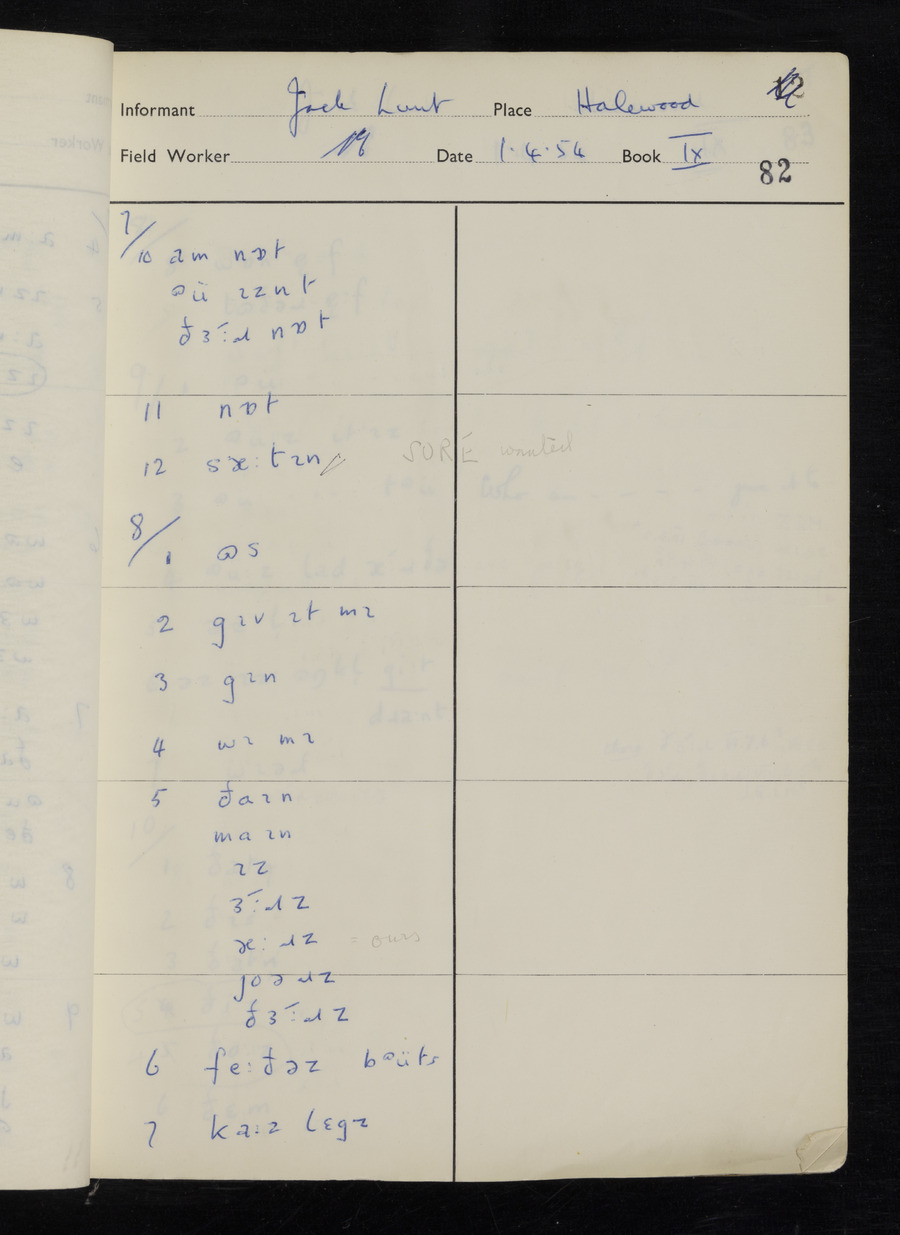 Informant Jack Lunt Place Halewood
Field Worker Date 1.4.54 Book IX
82
7/
10 am nɒt
əü ɪznt
ðɜ̄:ɹ nɒt
11 nɒt
12 sæ:tɪn SURE wanted
8/
1 əs
2 gɪv ɪt mɪ
3 gɪn
4 wɪ mɪ
5 ðaɪn
maɪn
ɪz
ɜ̄:ɹz
æ:ɹz = ours
joəɹz
ðɜ̄:ɹz
6 fe:ðəz bəüts
7 ka:z lɛgz